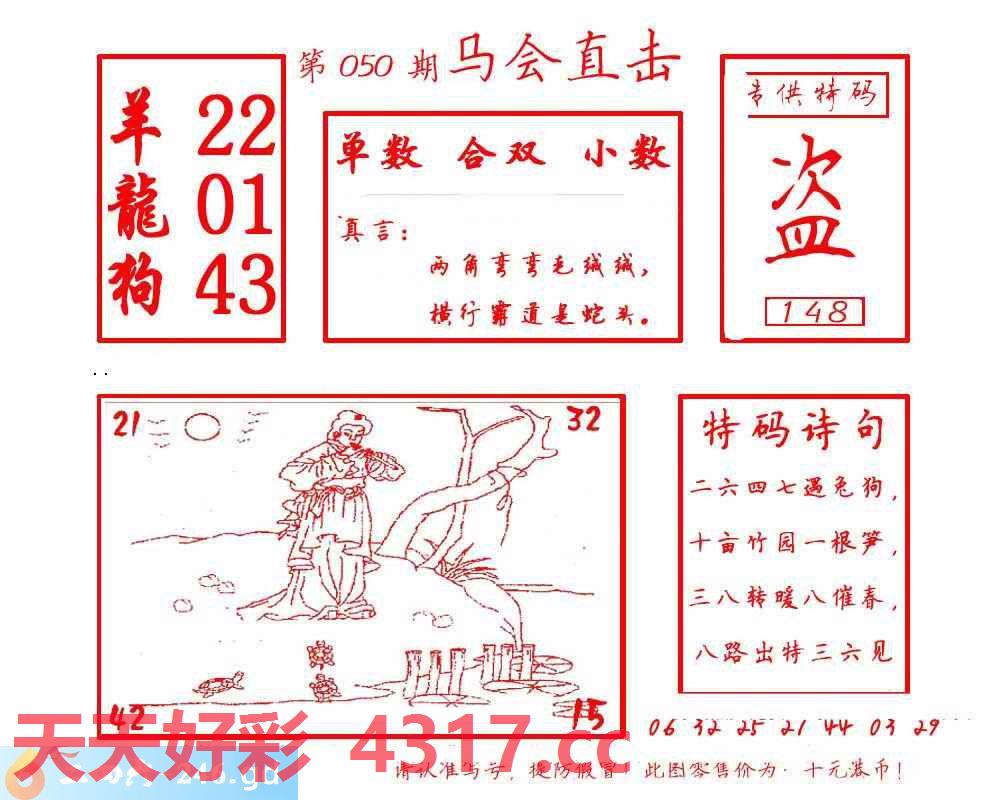 第 050 期 马会直击
羊 22
龍 01
狗 43
单数 合双 小数
真言：
两角弯弯毛绒绒，
横行霸道是蛇头。
专供特码
盗
148
21
32
42
15
特码诗句
二六四七遇兔狗，
十亩竹园一根笋，
三八转暖八催春，
八路出特三六见
06 32 25 21 44 03 29
天天好彩 4317.cc
246.gd
请认准写号，提防假冒！此图零售价为·十元港币！